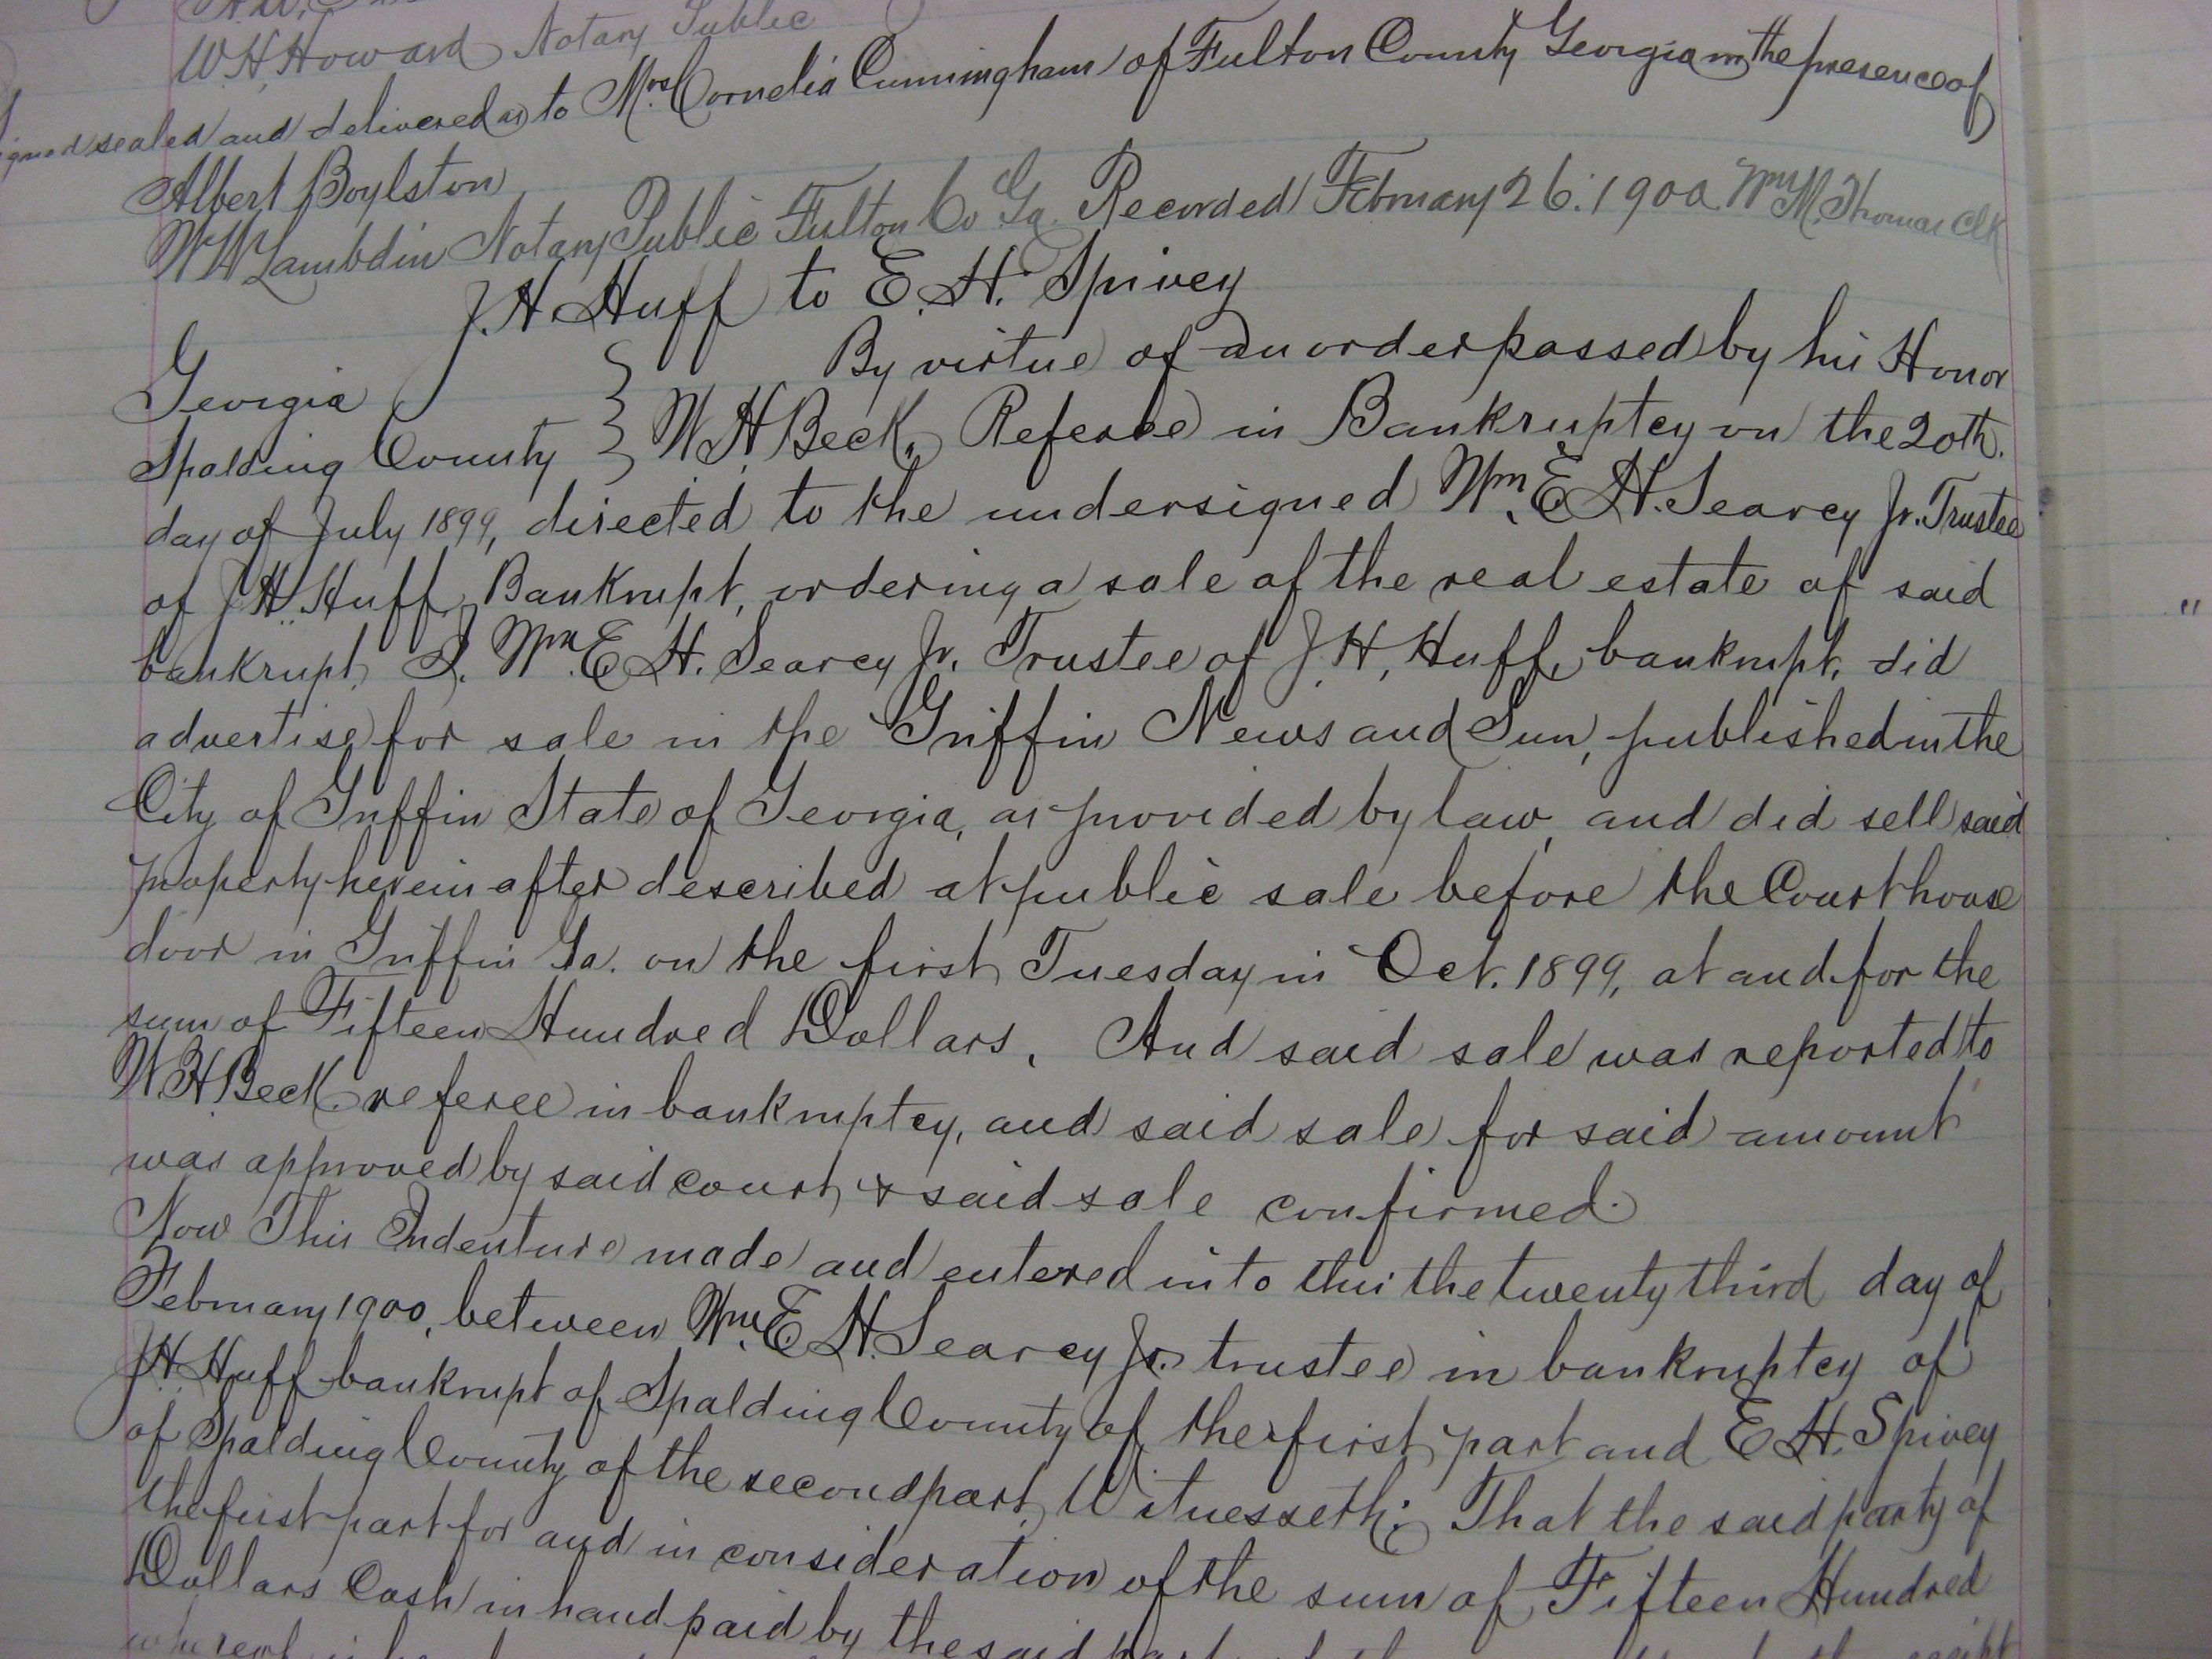 W.H. Howard Notary Public
signed sealed and delivered as to Mrs. Cornelia Cunningham of Fulton County Georgia in the presence of
Albert Boylston
W W Lambdin Notary Public Fulton Co Ga. Recorded February 26. 1900. Wm M. Thomas Clk
J. H. Huff to E. H. Spivey
Georgia } By virtue of an order passed by his Honor
Spalding County } W. H. Beck, Referee in Bankruptcy on the 20th.
day of July 1899, directed to the undersigned Wm. E. H. Searcy Jr. Trustee
of J. H. Huff, Bankrupt, ordering a sale of the real estate of said
bankrupt. I. Wm. E. H. Searcy Jr. Trustee of J. H. Huff, bankrupt, did
advertise for sale in the Griffin News and Sun, published in the
City of Griffin State of Georgia, as provided by law, and did sell said
property herein after described at public sale before the Court house
door in Griffin Ga. on the first Tuesday in Oct. 1899, at and for the
sum of Fifteen Hundred Dollars. And said sale was reported to
W. H. Beck referee in bankruptcy, and said sale for said amount
was approved by said court, & said sale confirmed.
Now This Indenture made and entered into this the twenty third day of
February 1900, between Wm. E. H. Searcy Jr. trustee in bankruptcy of
J. H. Huff bankrupt of Spalding County of the first part and E. H. Spivey
of Spalding County of the second part, Witnesseth; That the said party of
the first part for and in consideration of the sum of Fifteen Hundred
Dollars Cash in hand paid by the said